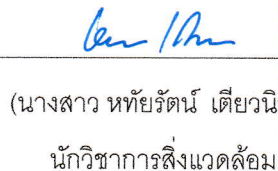 (นางสาว หทัยรัตน์ เตียวนิ
นักวิชาการสิ่งแวดล้อม